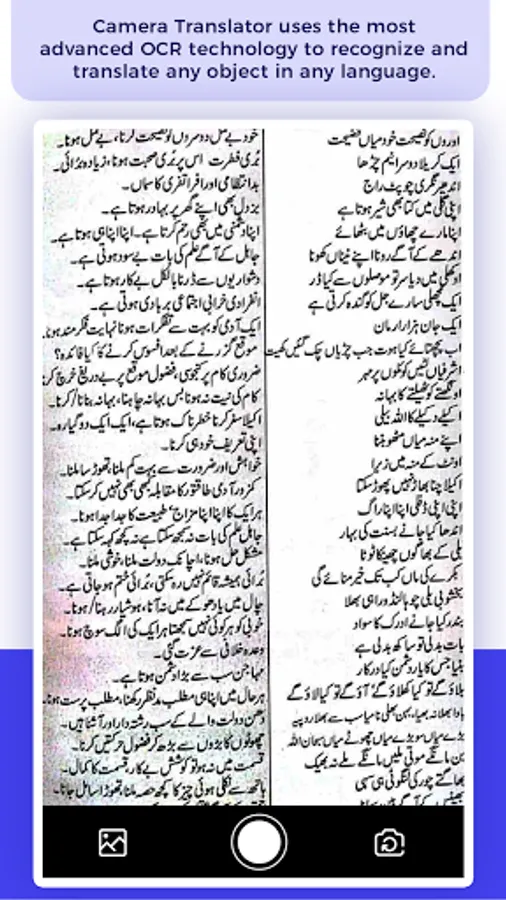 Camera Translator uses the most
advanced OCR technology to recognize and
translate any object in any language.
اوروں کو نصیحت خود میاں فضیحت
ایک کریلا دوسرا نیم چڑھا
اندھیر نگری چوپٹ راج
اپنی گلی میں کتا بھی شیر ہوتا ہے
اپنا مارے چھاؤں میں بٹھائے
اندھے کے آگے رونا اپنے نیناں کھونا
اوکھلی میں دیا سر تو موصلوں سے کیا ڈر
ایک مچھلی سارے جل کو گندہ کرتی ہے
ایک جان ہزار ارمان
اب پچھتائے کیا ہوت جب چڑیاں چگ گئیں کھیت
اشرفیاں لٹیں کوئلوں پر مہر
اونگھتے کو ٹھیلتے کا بہانہ
اکیلے دکیلے کا اللہ بیلی
اپنے منہ میاں مٹھو بننا
اونٹ کے منہ میں زیرا
اکیلا چنا بھاڑ نہیں پھوڑ سکتا
اپنی اپنی ڈفلی اپنا اپنا راگ
اندھا کیا جانے بسنت کی بہار
بلی کے بھاگوں چھینکا ٹوٹا
بکرے کی ماں کب تک خیر منائے گی
بخشو بی بلی چوہا لنڈورا ہی بھلا
بندر کیا جانے ادرک کا سواد
بات بدلی تو ساکھ بدلی ہے
بنیا جس کا یار دشمن کیا درکار
بلاؤ گے تو کیا کھلاؤ گے، آؤ گے تو کیا لاؤ گے
باوا بھلا نہ بھیا، بہن بھلی نا میا سب سے بھلا روپیہ
بڑے میاں سو بڑے میاں چھوٹے میاں سبحان اللہ
بن مانگے موتی ملیں مانگے ملے نہ بھیک
بھاگتے چور کی لنگوٹی ہی سہی
بھینس کے آگے بین بجانا
خود بے عمل دوسروں کو نصیحت کرنا، بے عمل ہونا۔
بُری فطرت اس پر بُری صحبت ہونا، زیادہ بُرائی۔
بدانتظامی اور افراتفری کا سماں۔
بزدل بھی اپنے گھر پر بہادر ہوتا ہے۔
اپنا دشمنی میں بھی رحم کرتا ہے۔ اپنا اپنا ہی ہوتا ہے۔
جاہل کے آگے علم کی بات بے سود ہوتی ہے۔
دشواریوں سے ڈرنا بالکل بے کار ہوتا ہے۔
انفرادی خرابی اجتماعی بربادی ہوتی ہے۔
ایک آدمی کو بہت سے تفکرات ہونا نہایت فکر مند ہونا۔
موقع گزرنے کے بعد افسوس کرنے کا کیا فائدہ؟
ضروری کام پر کنجوسی، فضول موقع پر بے دریغ خرچ کرنا
کام کی نیت نہ ہونا بس بہانہ چاہنا، بہانہ بنانا/کرنا۔
اکیلا سفر کرنا خطرناک ہوتا ہے، ایک ایک دو گیارہ۔
اپنی تعریف خود ہی کرنا۔
خواہش اور ضرورت سے بہت کم ملنا، تھوڑا سا ملنا۔
کمزور آدمی طاقتور کا مقابلہ کبھی بھی نہیں کر سکتا۔
ہر ایک کا اپنا اپنا مزاج، طبیعت کا جدا جدا ہونا۔
جاہل علم کی بات نہ سمجھ سکتا ہے نہ کچھ کہہ سکتا ہے۔
مشکل حل ہونا، اچانک دولت ملنا، خوشی ملنا۔
بُرائی ہمیشہ قائم نہیں رہ سکتی، بُرائی ختم ہو جاتی ہے۔
چال میں یا دھوکے میں نہ آنا، ہوشیار رہنا/ہونا۔
خوبی کو ہر کوئی نہیں سمجھتا ہر ایک کی الگ سوچ ہونا۔
وعدہ خلافی سے عزت گئی۔
مہاجن سب سے بڑا دشمن ہوتا ہے۔
ہر حال میں اپنا ہی مطلب مدنظر رکھنا، مطلب پرست ہونا۔
دھن دولت والے کے سب رشتہ دار اور آشنا ہیں۔
چھوٹوں کا بڑوں سے بڑھ کر فضول حرکتیں کرنا۔
قسمت میں نہ ہو تو کوشش بے کار، قسمت کا کمال۔
ہاتھ سے نکلی ہوئی چیز کا کچھ حصہ ملنا، تھوڑا سا مل جانا۔